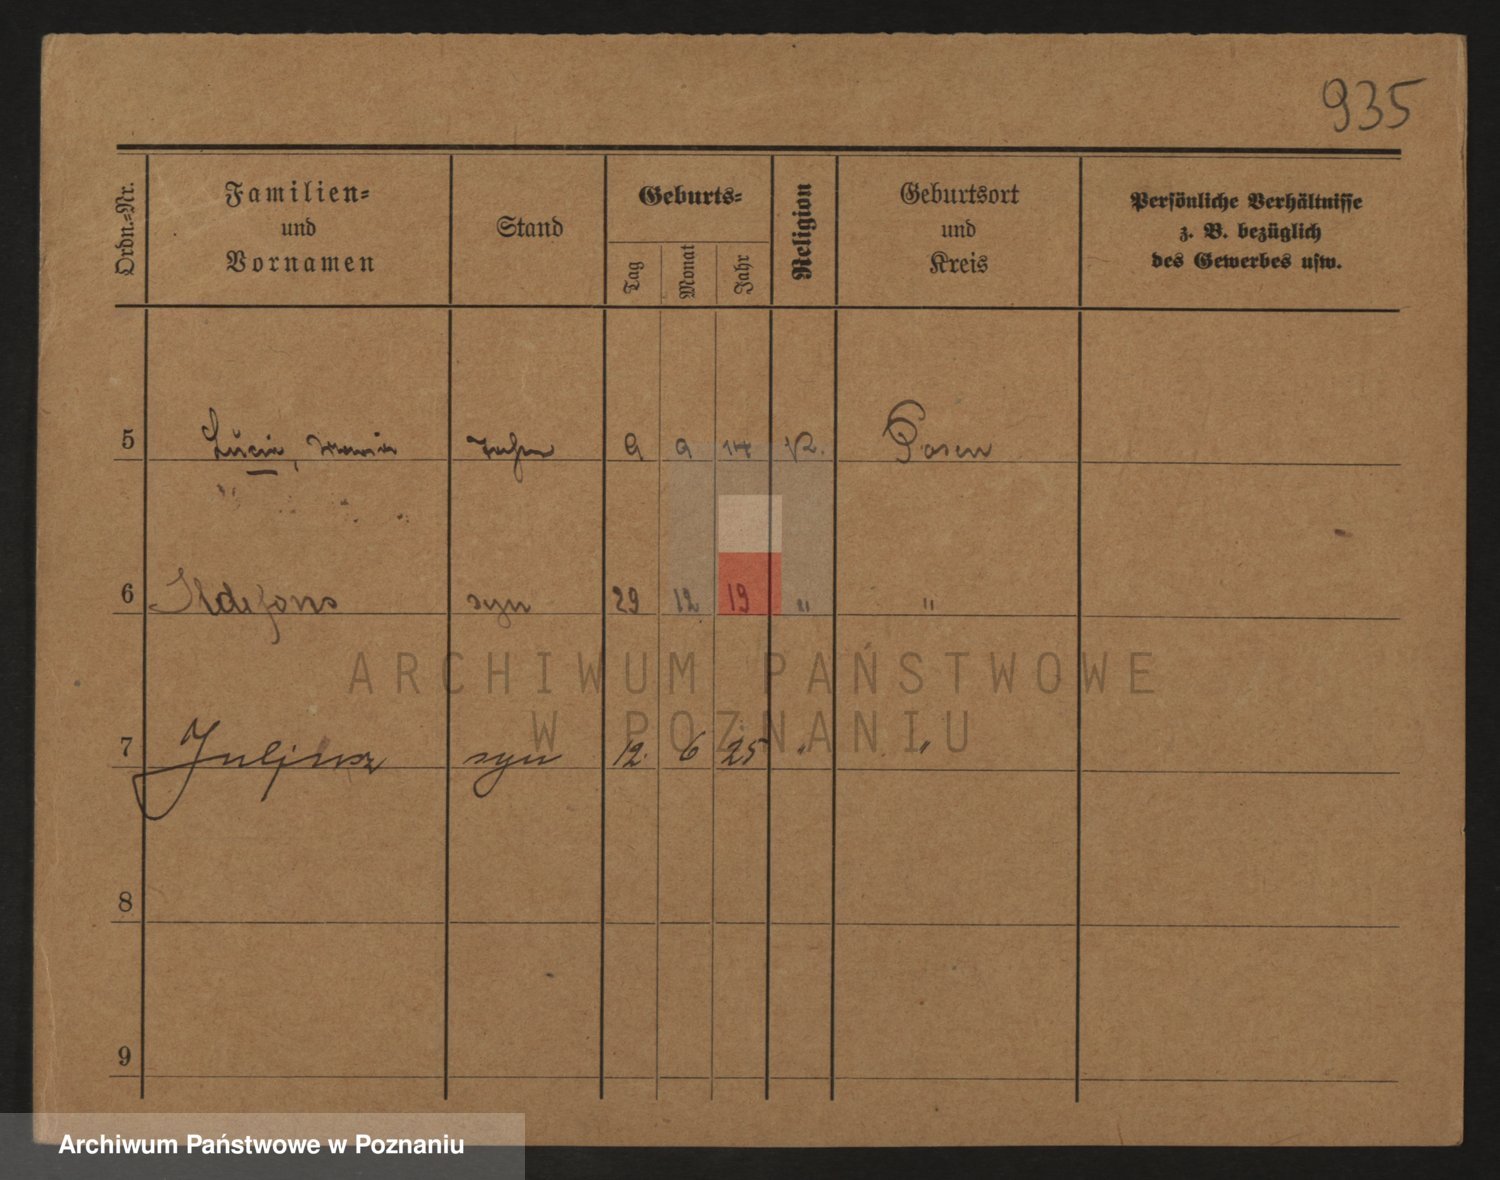 935
Ordn.=Nr.
Familien=
und
Vornamen
Stand
Geburts=
Tag
Monat
Jahr
Religion
Geburtsort
und
Kreis
Persönliche Verhältnisse
z. B. bezüglich
des Gewerbes usw.
5 Lucie, Maria 9 9 14 K. Posen
6 Ildefons syn 29 12 19 " "
ARCHIWUM PAŃSTWOWE
W POZNANIU
7 Juljusz syn 12. 6 25 " "
8
9
Archiwum Państwowe w Poznaniu